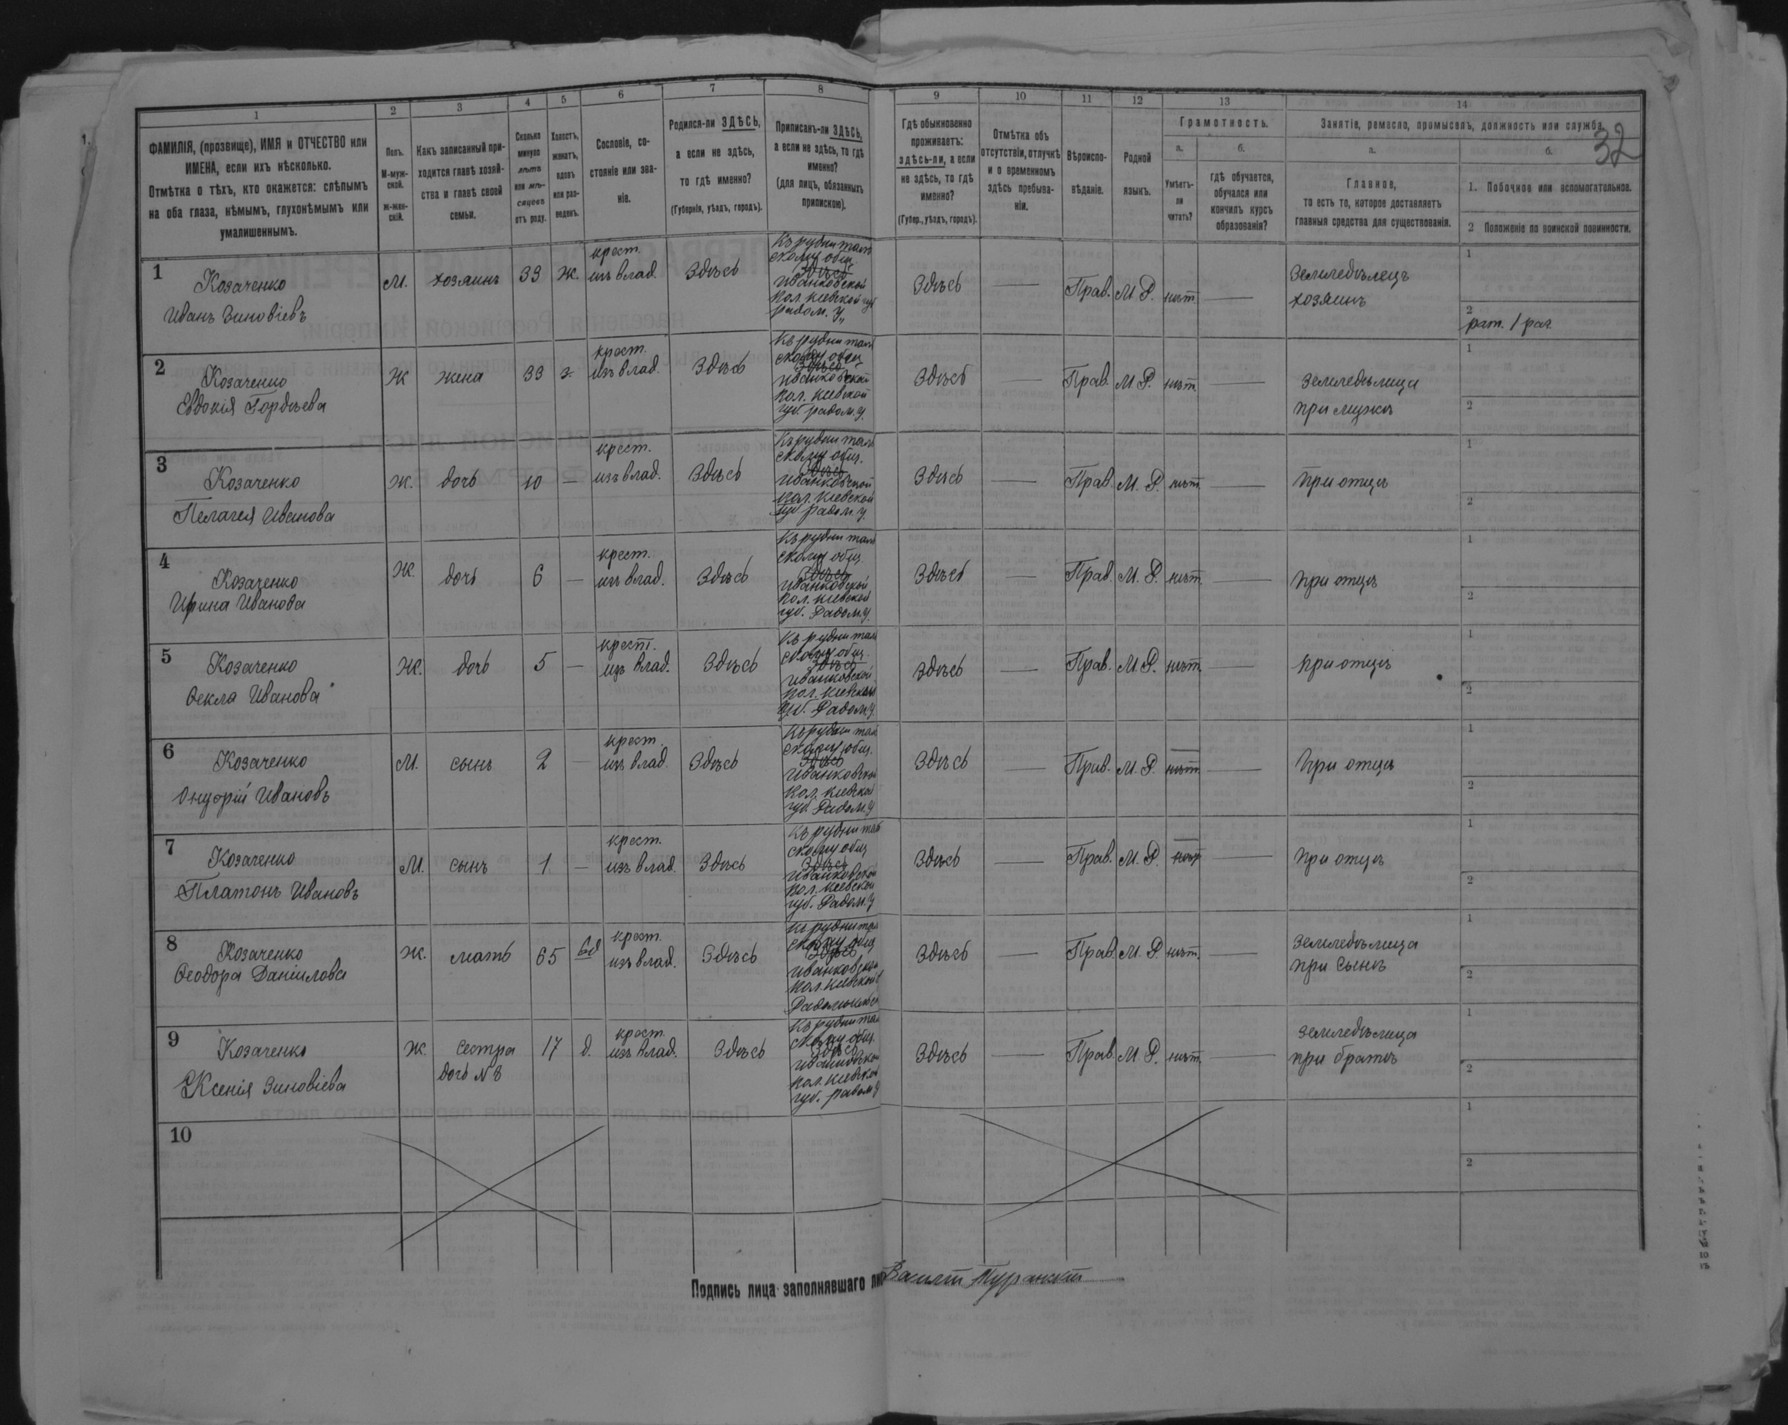 32
1 2 3 4 5 6 7 8 9 10 11 12 13 14
ФАМИЛІЯ, (прозвище), ИМЯ и ОТЧЕСТВО или
ИМЕНА, если ихъ нѣсколько.
Отмѣтка о тѣхъ, кто окажется: слѣпымъ
на оба глаза, нѣмымъ, глухонѣмымъ или
умалишеннымъ.
Полъ.
М-муж-
ской.
ж-жен-
скій.
Какъ записанный при-
ходится главѣ хозяй-
ства и главѣ своей
семьи.
Сколько
минуло
лѣтъ
или мѣ-
сяцевъ
отъ роду.
Холостъ,
женатъ,
вдовъ
или раз-
веденъ.
Сословіе, со-
стояніе или зва-
ніе.
Родился-ли ЗДѢСЬ,
а если не здѣсь,
то гдѣ именно?
(Губернія, уѣздъ, городъ).
Приписанъ-ли ЗДѢСЬ,
а если не здѣсь, то гдѣ
именно?
(для лицъ, обязанныхъ
припискою).
Гдѣ обыкновенно
проживаетъ:
здѣсь-ли, а если
не здѣсь, то гдѣ
именно?
(Губер., уѣздъ, городъ).
Отмѣтка объ
отсутствіи, отлучкѣ
и о временномъ
здѣсь пребыва-
ніи.
Вѣроиспо-
вѣданіе.
Родной
языкъ.
Грамотность.
а.
Умѣетъ-
ли
читать?
б.
гдѣ обучается,
обучался или
кончилъ курсъ
образованія?
Занятіе, ремесло, промыселъ, должность или служба.
а.
Главное,
то есть то, которое доставляетъ
главныя средства для существованія.
б.
1. Побочное или вспомогательное.
2 Положеніе по воинской повинности.
1 Козаченко
Иванъ Зиновіевъ
М. хозяинъ 33 ж.
крест.
изъ влад. Здѣсь
Къ рудни таль
скому общ.
Здѣсь
Иванковской
вол. Кіевской губ
радом. у.
Здѣсь — Прав. М. Р. нѣт. —
Земледѣлецъ
хозяинъ
1
2
рат. 1 раз
2 Козаченко
Евдокія Гордѣева
Ж жена 33 з.
крест.
изъ влад. Здѣсь
Къ рудни таль
скому общ
Здѣсь
Иванковской
вол. Кіевской
губ радом. у.
Здѣсь — Прав. М. Р. нѣт. —
Земледѣлица
при мужѣ
1
2
3 Козаченко
Пелагея Иванова
Ж. дочь 10 —
крест.
изъ влад. Здѣсь
Къ рудни таль
скому общ.
Здѣсь
Иванковской
вол. Кіевской
губ радом. у.
Здѣсь — Прав. М. Р. нѣт. — При отцѣ
1
2
4 Козаченко
Ирина Иванова
Ж. дочь 6 —
крест.
изъ влад. Здѣсь
Къ рудни таль
скому общ
Здѣсь
Иванковской
вол. Кіевской
губ. Радом. у.
Здѣсь — Прав. М. Р. нѣт. — При отцѣ
1
2
5 Козаченко
Ѳекла Иванова
Ж. дочь 5 —
крест.
изъ влад. Здѣсь
Къ рудни таль
скому общ.
Здѣсь
Иванковской
вол. Кіевской
губ. Радом. у.
Здѣсь — Прав. М. Р. нѣт. — При отцѣ
1
2
6 Козаченко
Онуфрій Ивановъ
М. сынъ 2 —
крест.
изъ влад. Здѣсь
Къ рудни таль
скому общ.
Здѣсь
Иванковской
вол. Кіевской
губ. Радом. у
Здѣсь — Прав. М. Р. нѣт. — При отцѣ
1
2
7 Козаченко
Платонъ Ивановъ
М. сынъ 1 —
крест.
изъ влад. Здѣсь
Къ рудни таль
скому общ
Здѣсь
Иванковской
вол. Кіевской
губ. Радом. у
Здѣсь — Прав. М. Р. нѣт. — При отцѣ
1
2
8 Козаченко
Ѳеодора Даніилова
Ж. мать 65 вд
крест.
изъ влад. Здѣсь
Къ рудни таль
скому общ
Здѣсь
Иванковской
вол. Кіевской
Здѣсь — Прав. М. Р. нѣт. —
Земледѣлица
при сынѣ
1
2
9 Козаченко
Ксенія Зиновіева
Ж. сестра
дочь № 8
17 д.
крест.
изъ влад. Здѣсь
Къ рудни таль
скому общ.
Здѣсь
Иванковской
вол. Кіевской
губ. радом. у
Здѣсь — Прав. М. Р. нѣт. —
Земледѣлица
при братѣ
1
2
10
1
2
Подпись лица заполнявшаго